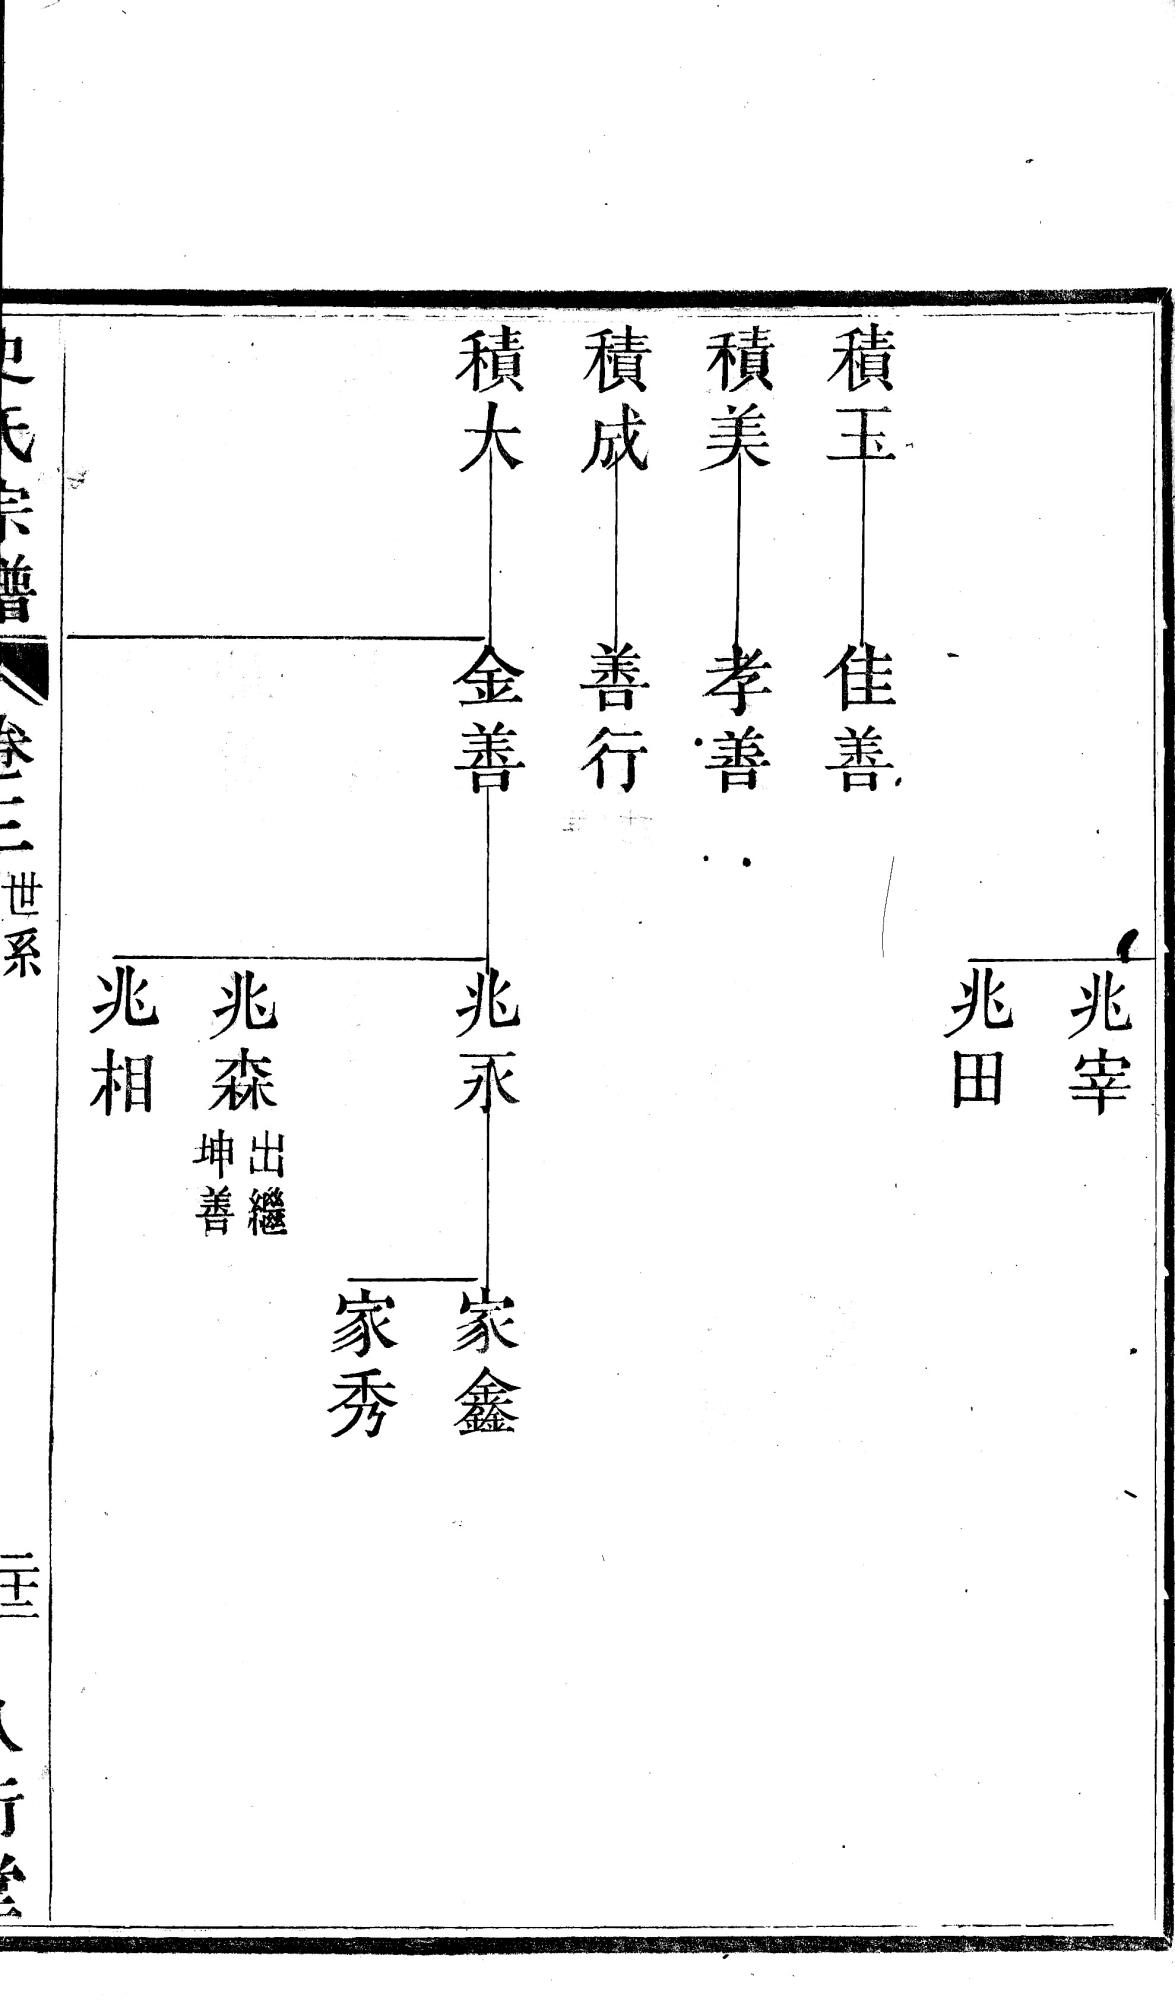 兆宰
兆田
積玉
佳善
積美
孝善
積成
善行
積大
金善
兆永
家鑫
家秀
兆森
出繼
坤善
兆相
史氏宗譜
卷三
世系
二十三
八行堂